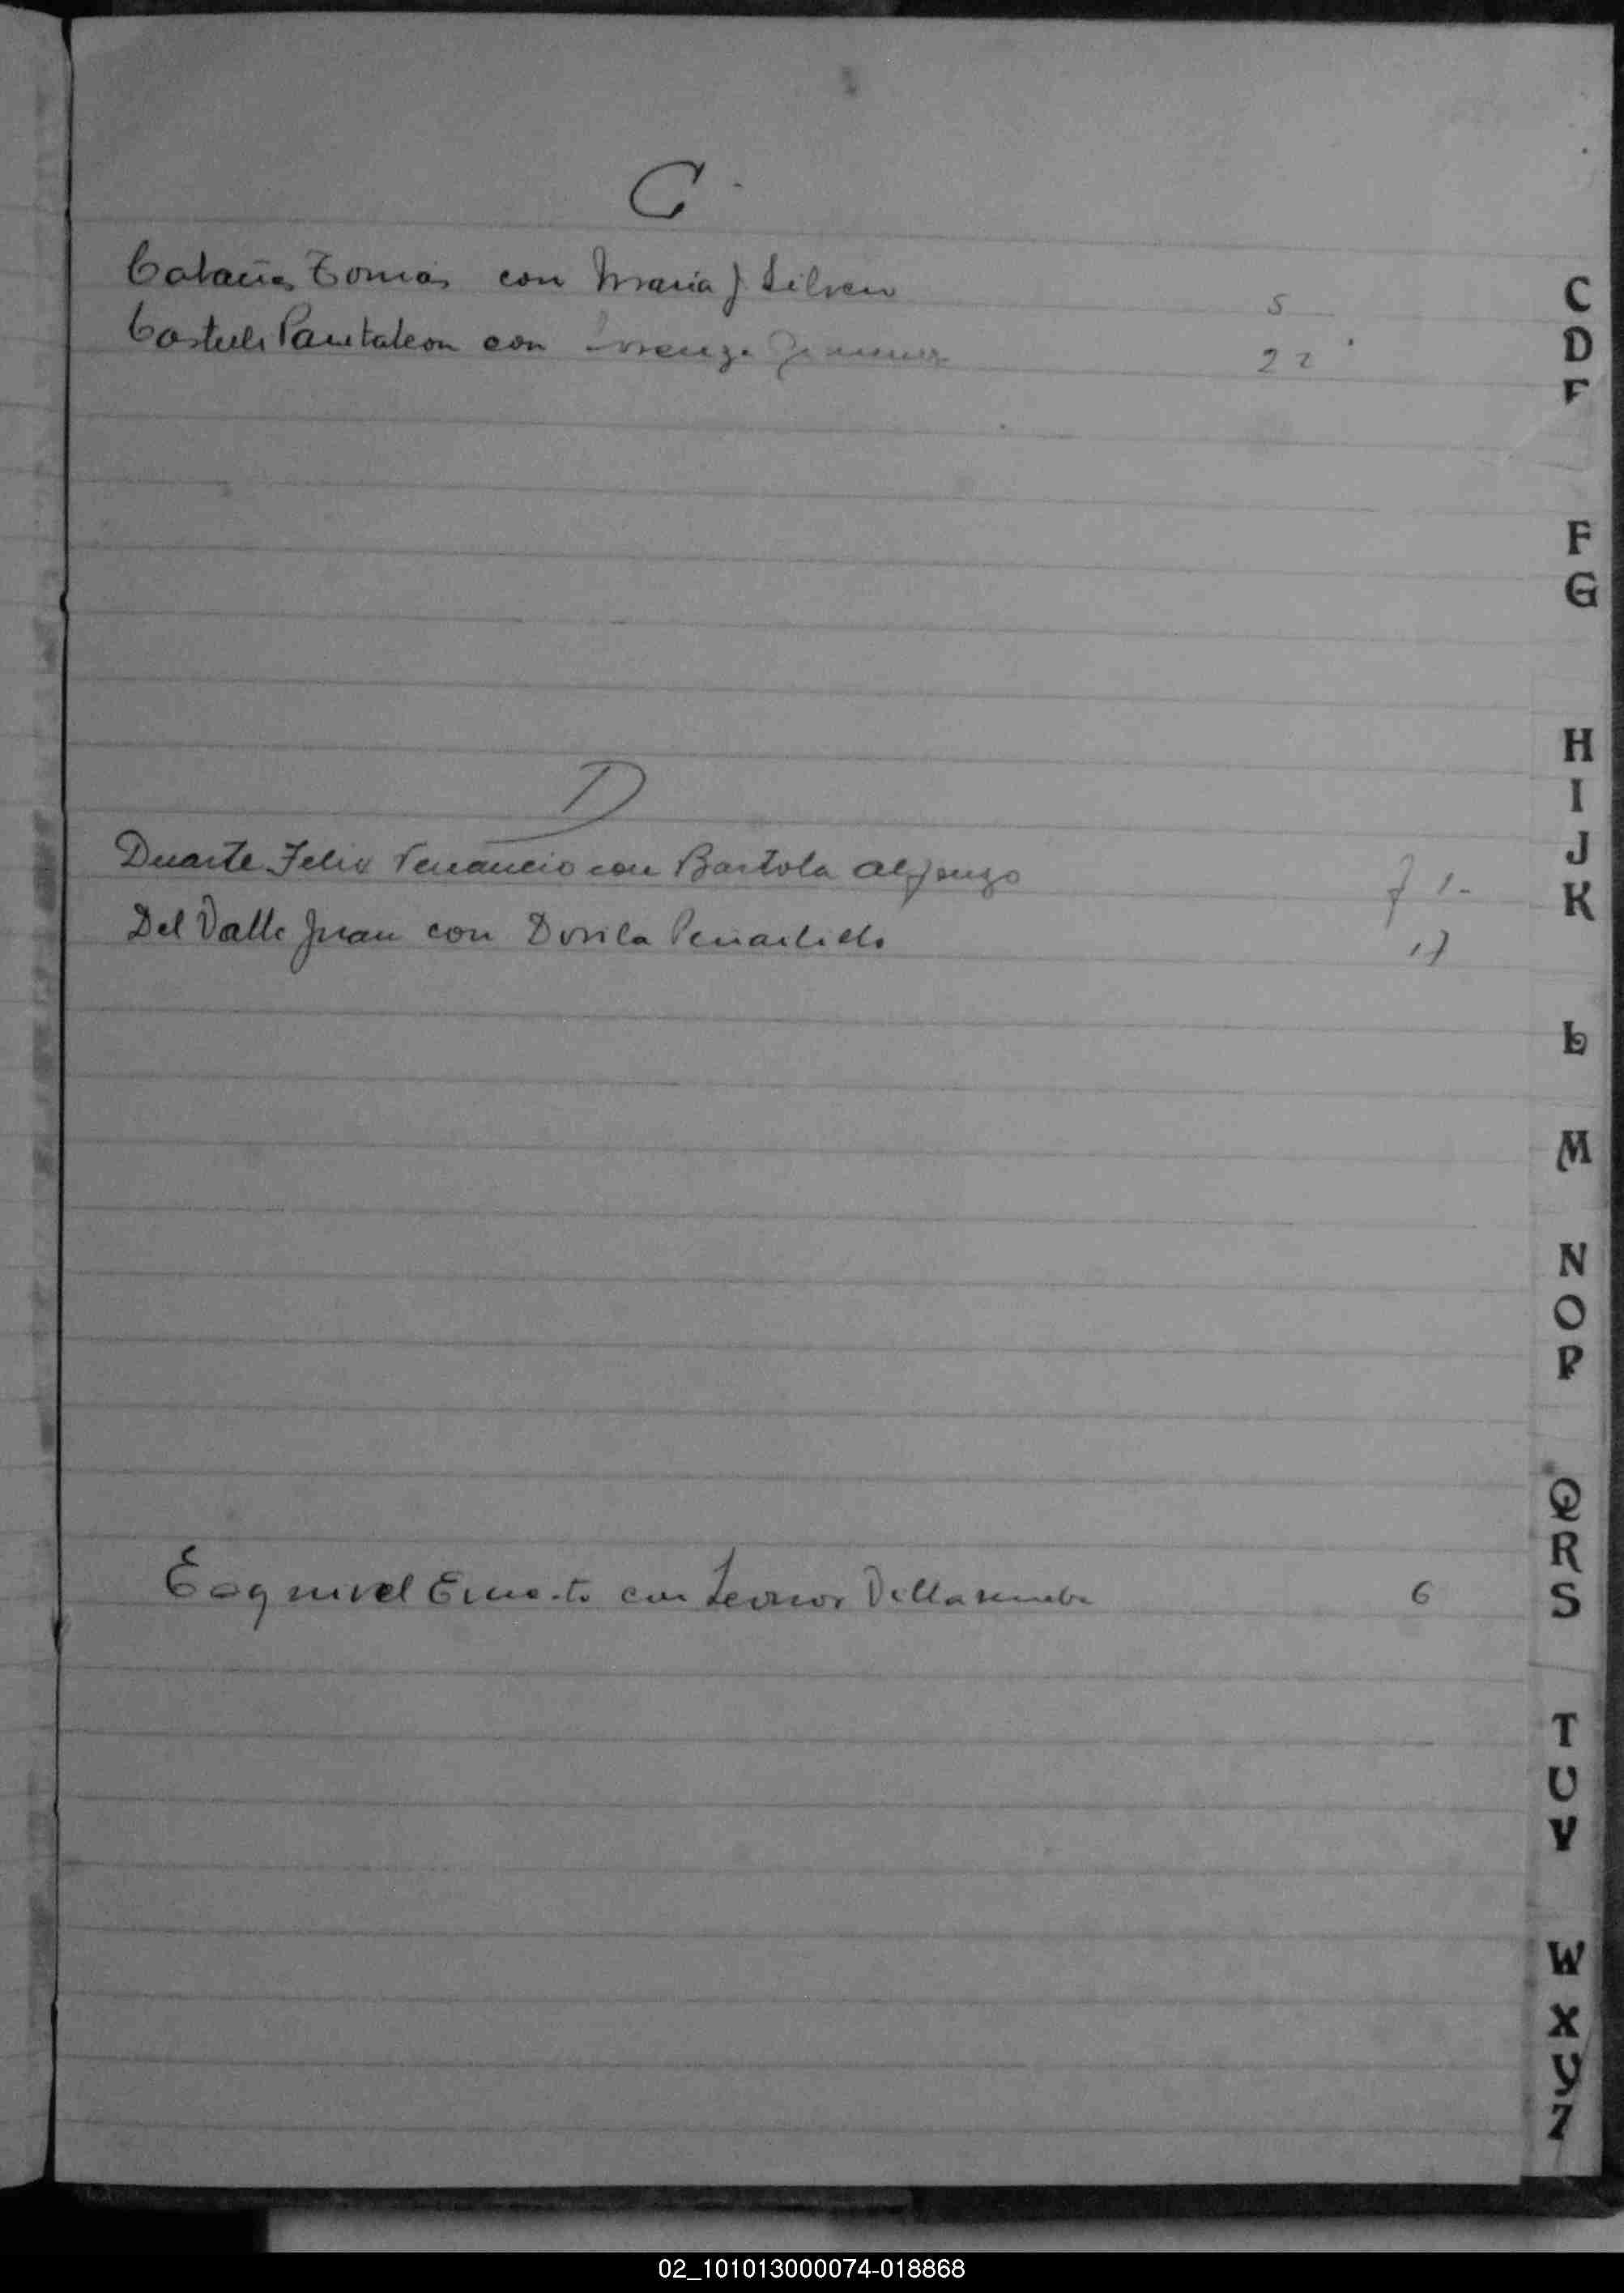 C
Tomás con Maria J Silven
Pantaleon con Lorenza
22
D
Duarte Felix Venancio con Bartola Alfonzo
f 1-
Del Valle Juan con Dorila
17
Esquivel Ernesto con Leonor
6
C
D
F
F
G
H
I
J
K
L
M
N
O
P
Q
R
S
T
U
V
W
X
Y
Z
02_101013000074-018868